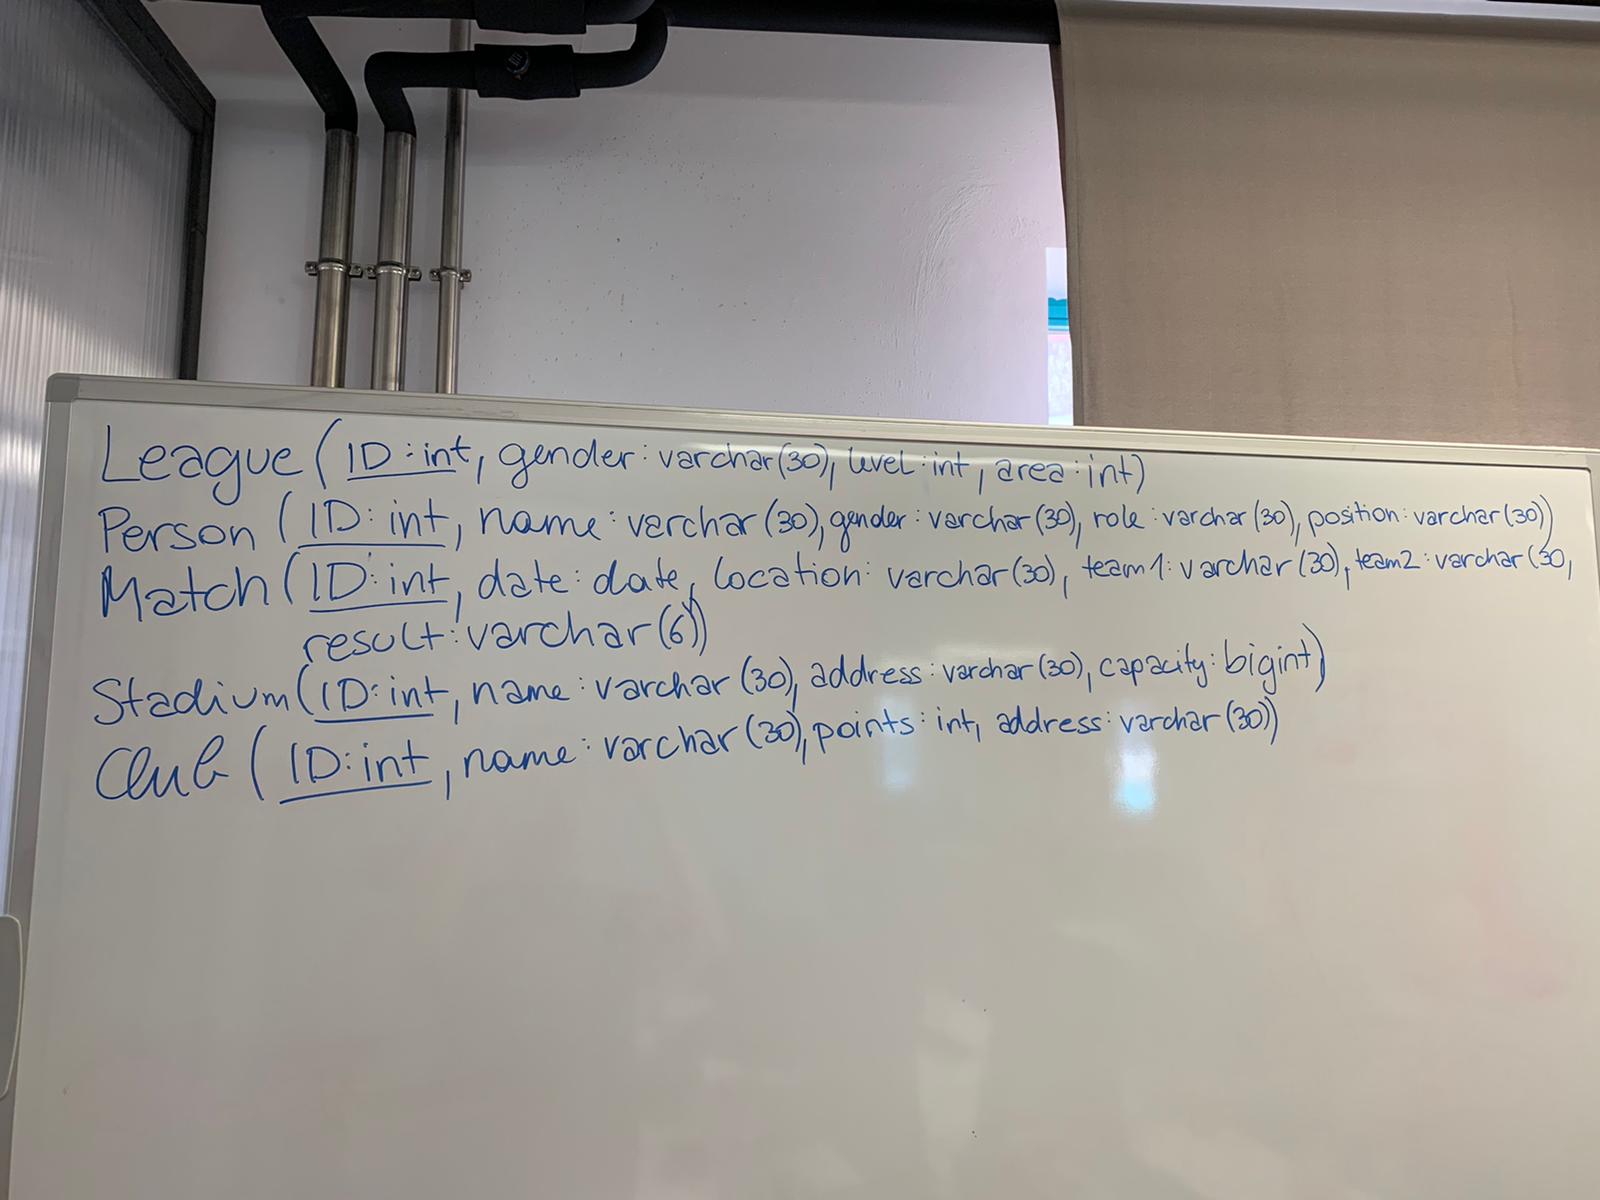 League (ID:int, gender:varchar(30), level:int, area:int)
Person (ID:int, name:varchar(30), gender:varchar(30), role:varchar(30), position:varchar(30))
Match (ID:int, date:date, location:varchar(30), team1:varchar(30), team2:varchar(30,
result:varchar(6))
Stadium (ID:int, name:varchar(30), address:varchar(30), capacity:bigint)
Club (ID:int, name:varchar(30), points:int, address:varchar(30))